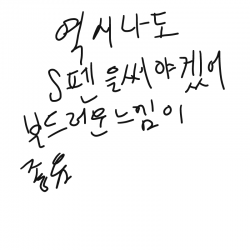 역시나도
S펜을써야겠어
부드러운느낌이
좋유